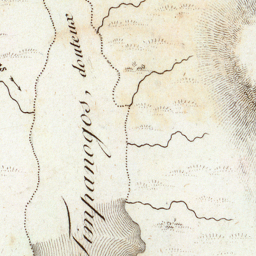 Timpanogos, douteux